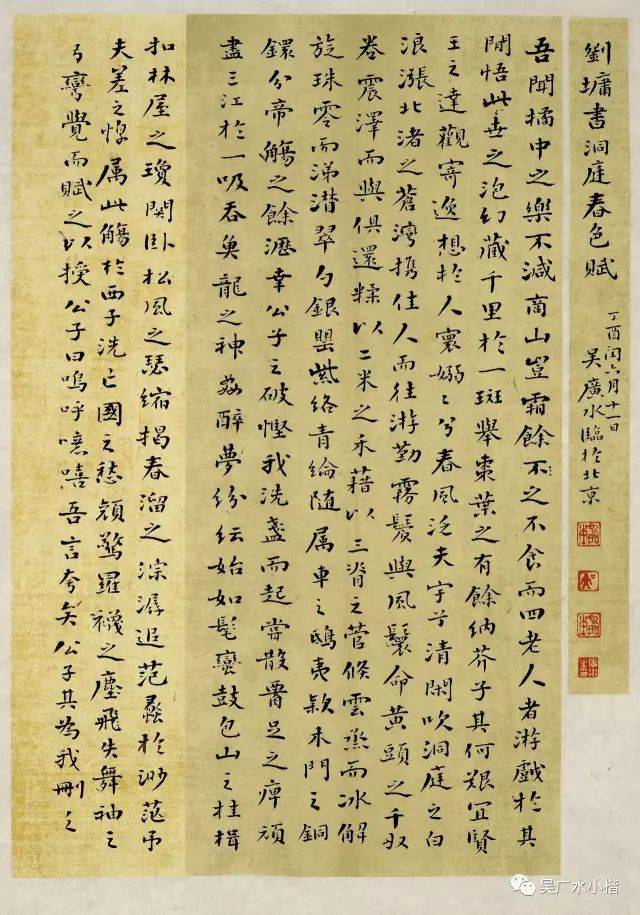 劉墉書洞庭春色賦
丁酉閏六月十一日
吳廣水臨於北京
吾聞橘中之樂不減商山豈霜餘不之不食而四老人者游戲於其
閒悟此善之泡幻藏千里於一斑舉棗葉之有餘納芥子其何艱宜賢
王之達觀寄逸想於人寰嫋〻兮春風泛天宇兮清閑吹洞庭之白
浪漲北渚之蒼灣攜佳人而往游勤霧鬢與風鬟命黃頭之千奴
卷震澤而與俱還糅以二米之禾藉以三脊之菅倏雲蒸而冰解
旋珠零而涕潸翠勺銀罌紫絡青綸随属車之鴟夷款木門之銅
鐶分帝觴之餘瀝幸公子之破慳我洗盞而起嘗散腰足之痺頑
盡三江於一吸吞魚龍之神姦醉夢紛紜始如髦蠻鼓包山之桂楫
扣林屋之瓊関卧松風之瑟縮揭春溜之淙潺追范蠡於渺茫弔
夫差之惸属此觴於西子洗亡國之愁顔驚羅襪之塵飛失舞袖之
弓彎覺而賦之以授公子曰嗚呼噫嘻吾言夸矣公子其為我刪之
吴广水小楷